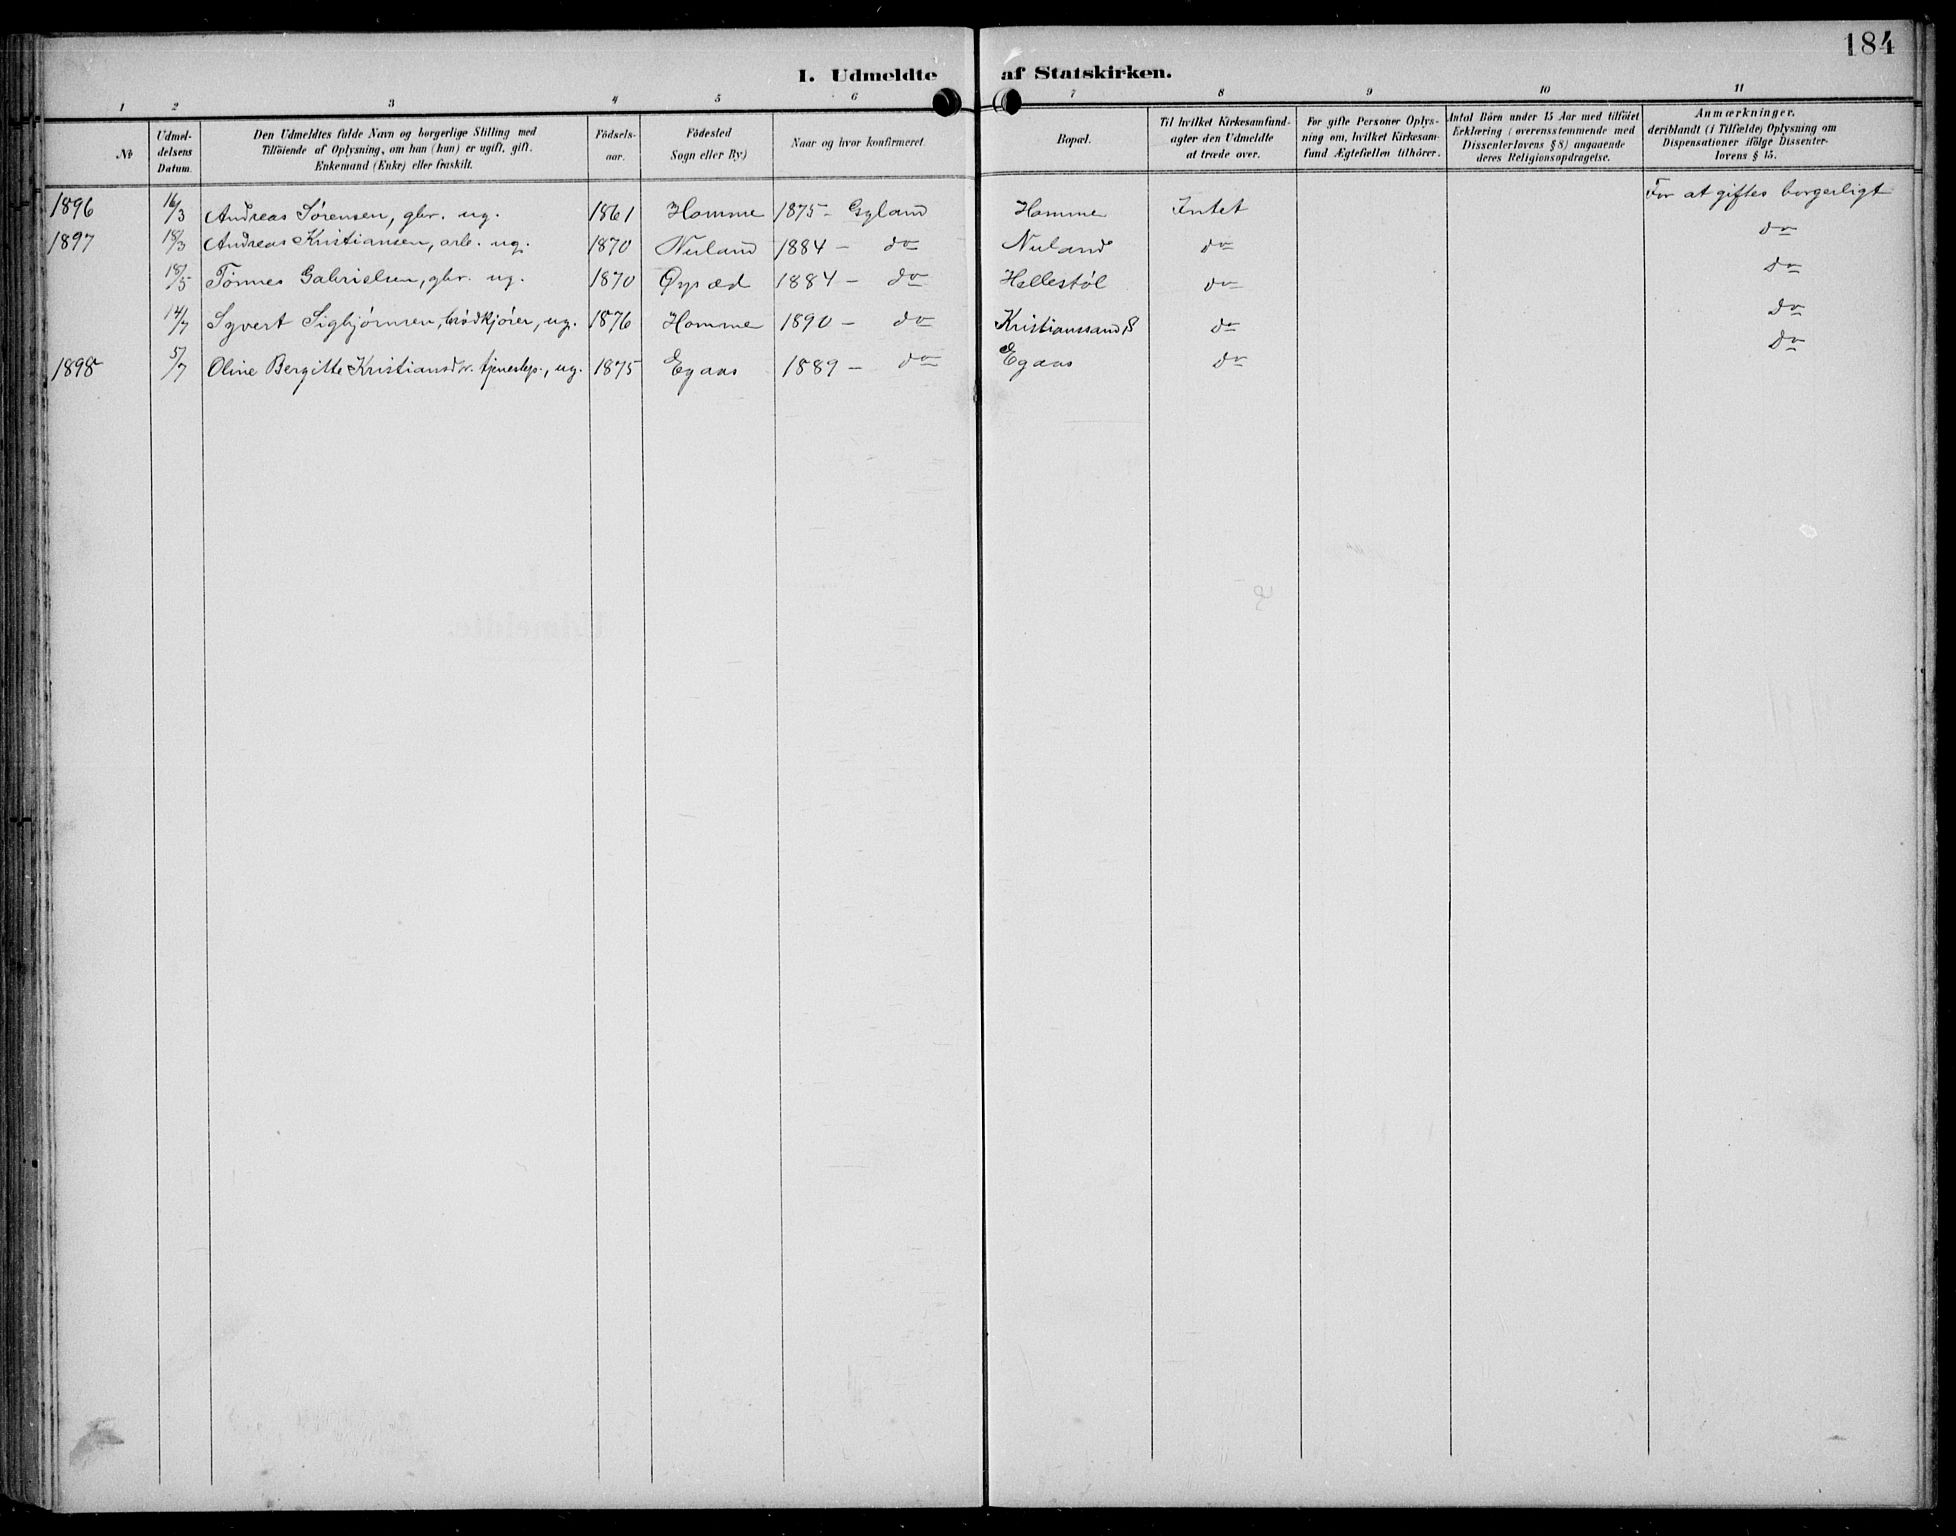 184
I. Udmeldte af Statskirken.
1 2 3 4 5 6 7 8 9 10 11
No
Udmel-
delsens
Datum.
Den Udmeldtes fulde Navn og borgerlige Stilling med
Tilföiende af Oplysning, om han (hun) er ugift, gift.
Enkemand (Enke) eller fraskilt.
Födsels-
aar.
Födested
Sogn eller By)
Naar og hvor konfirmeret
Bopæl.
Til hvilket Kirkesamfund-
agter den Udmeldte
at træde over.
For gifte Personer Oplys-
ning om, hvilket Kirkesam-
fund Ægtefællen tilhörer.
Antal Börn under 15 Aar med tilföiet
Erklæring (overensstemmende med
Dissenterlovens § 8) angaaende
deres Religionsopdragelse.
Anmærkninger.
deriblandt (i Tilfælde) Oplysning om
Dispensationer ifölge Dissenter-
lovens § 15.
1896 16/3 Andreas Sørensen, gbr. ug. 1861 Homme 1875 - Gyland Homme Intet For at giftes borgerligt
1897 18/3 Andreas Kristiansen, arb. ug. 1870 Nuland 1884 - do Nuland do do
18/5 Tønnes Gabrielsen, gbr. ug. 1870 Øysæd 1884 - do Hellestøl do do
14/7 Syvert Sigbjørnsen, brødkjører, ug. 1876 Homme 1890 - do Kristianssand S do do
1898 5/7 Oline Bergitte Kristiansdtr. tjenestep., ug. 1875 Egaas 1889 - do Egaas do do